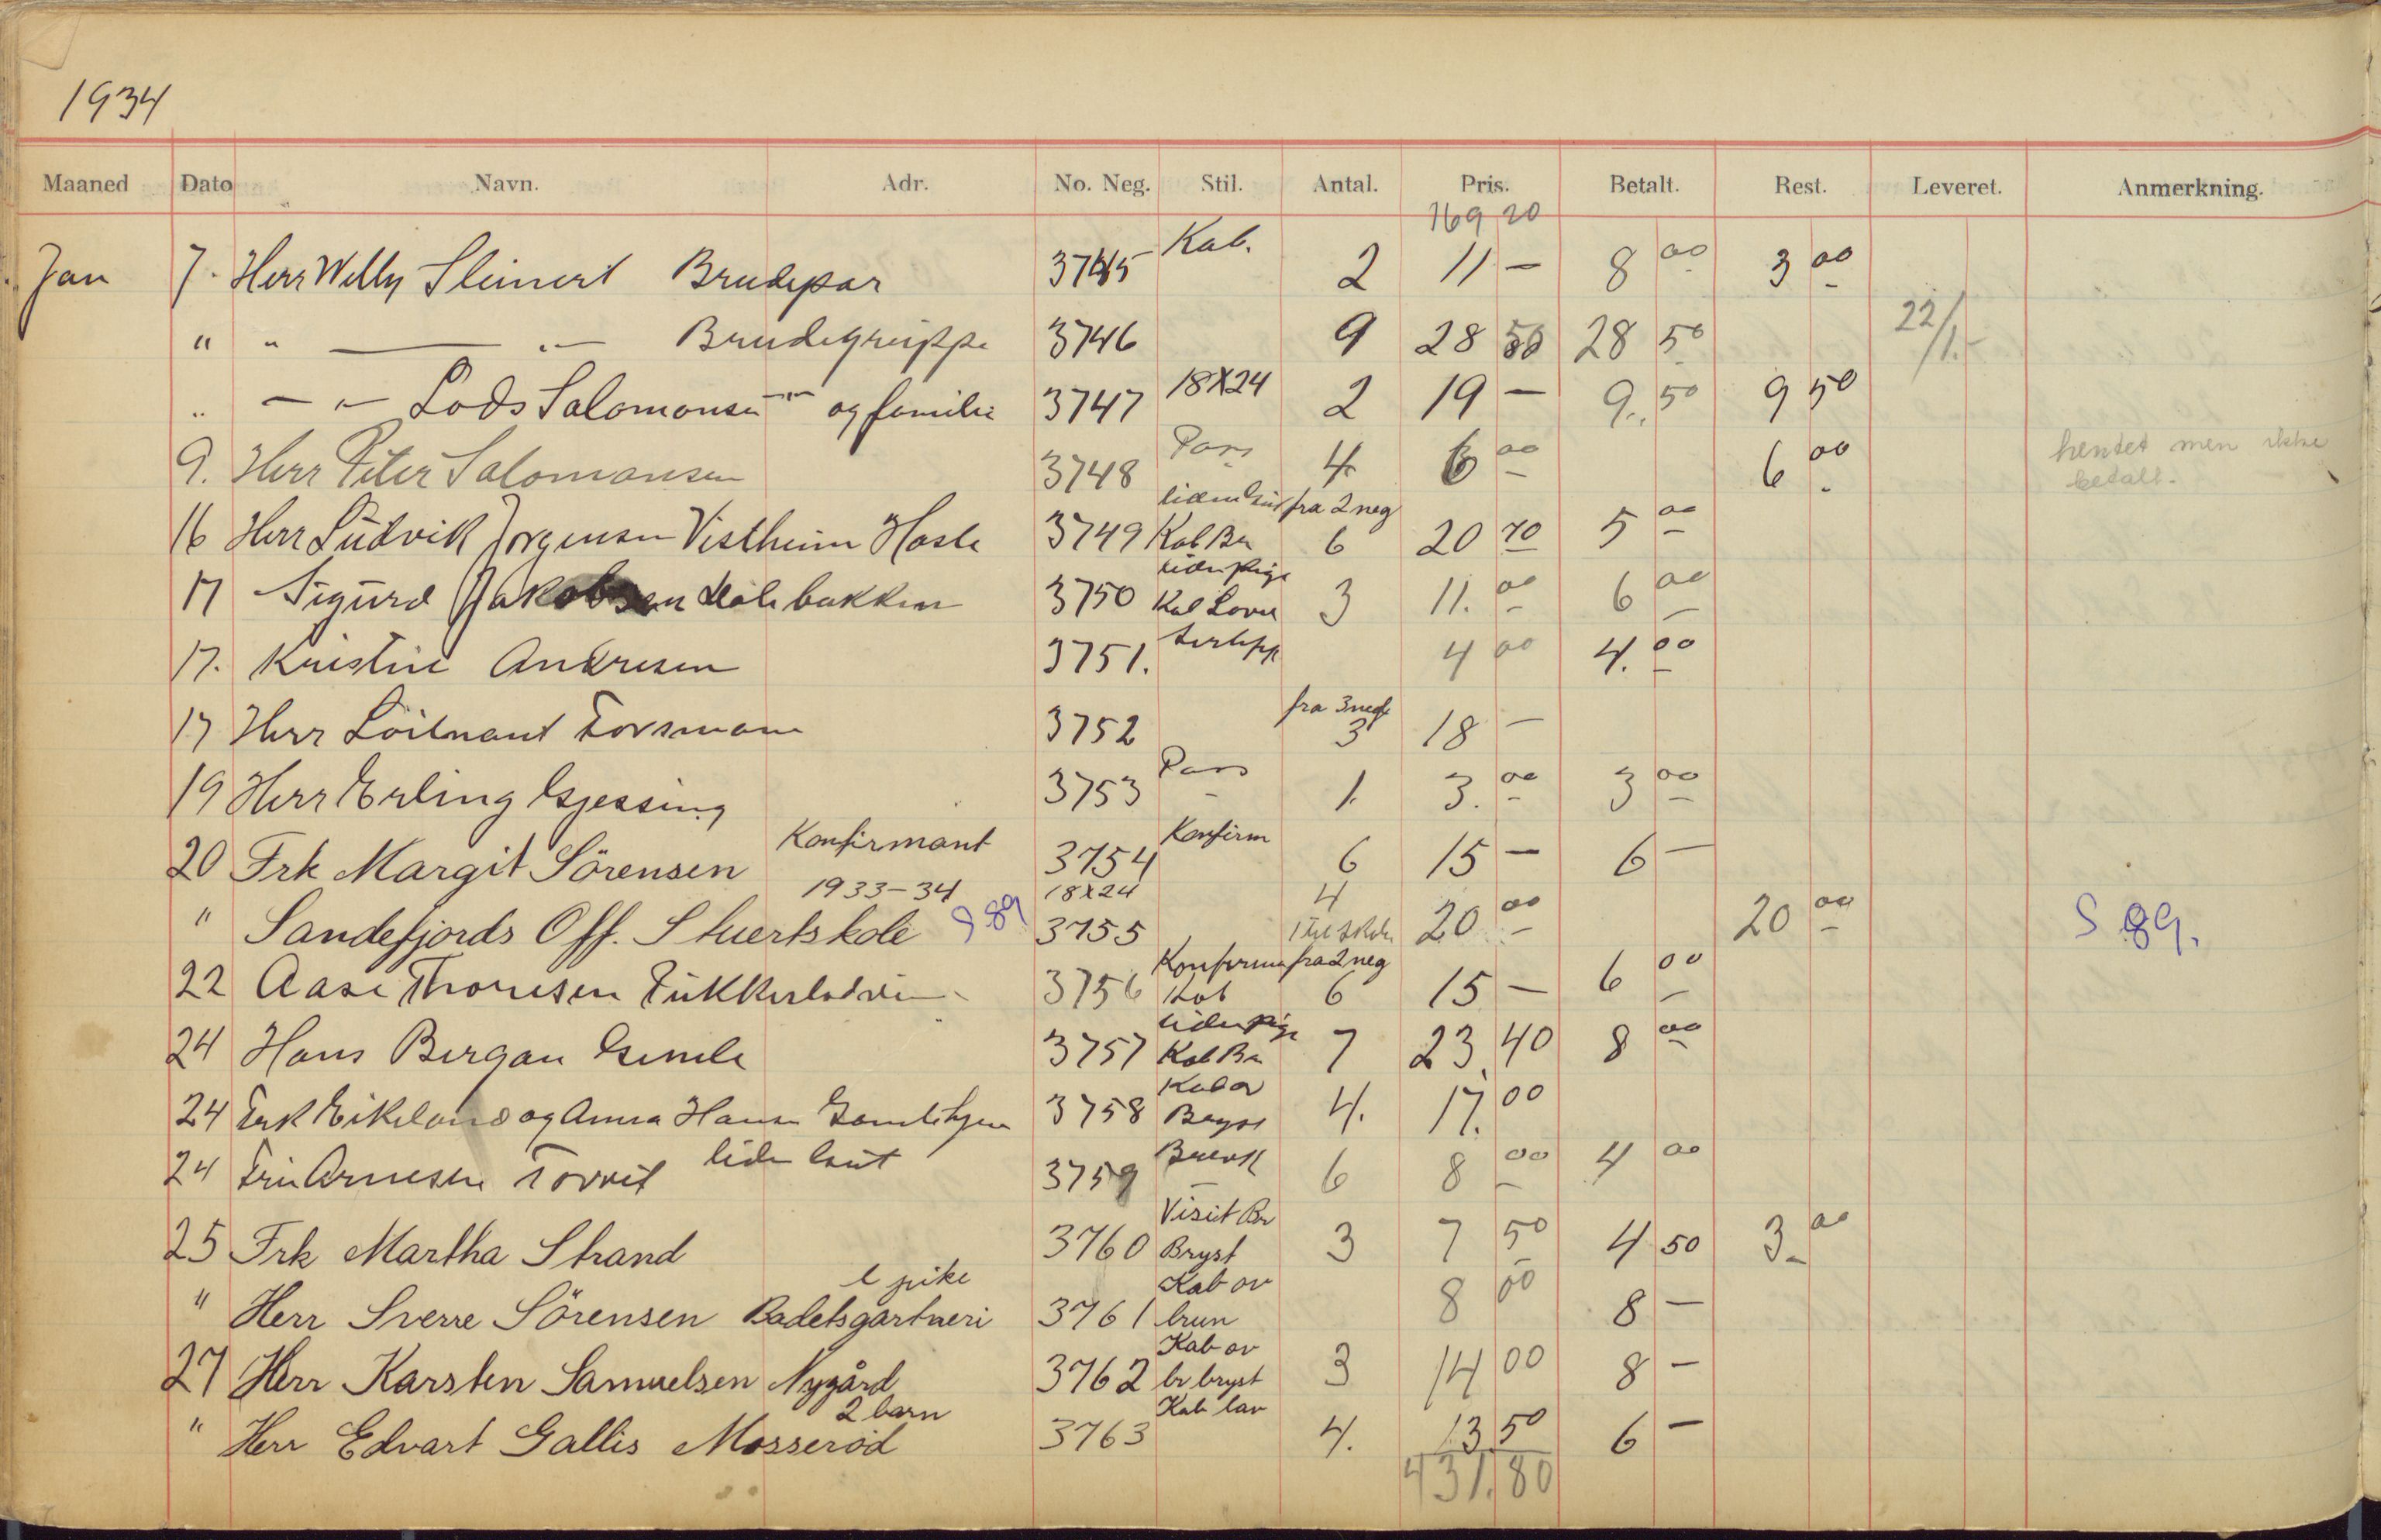 1934
Maaned Dato Navn. Adr. No. Neg. Stil. Antal. Pris. Betalt. Rest. Leveret. Anmerkning.
169 20
Jan 7. Herr Willy Steinert Brudepar 3745 Kab. 2 11 — 8 00 3 00
" " — " — Brudegruppe 3746 9 28 50 28 50 22/1.-
" — " — Lods Salomonsen og familie 3747 18X24 2 19 — 9.. 50 9 50
9. Herr Peter Salomonsen 3748 Pass 4. 6 00 6 00 hentet men ikke betalt.
16 Herr Ludvik Jorgensen Vestheim Hasle 3749 liden Kab Br fra 2 neg 6 20 70 5 00
17 Sigurd Jakobsen bakken 3750 liden pige Kab 3 11. 00 6 00
17. Kristine Andresen 3751. 4 00 4. 00
17 Herr Löitnant Forsman 3752 fra 3 neg 3 18 —
19 Herr Erling Gjessing 3753 Pass 1. 3. 00 3 00
20 Frk Margit Sörensen Konfirmant 3754 Konfirm 6 15 — 6 —
" Sandefjords Off. Stuertskole 1933-34 S 89 18X24 3755 4 20 00 20 00 S 89.
22 Aase Thoresen 3756 Konfirm Kab fra 2 neg 6 15 — 6 00
24 Hans Bergan Gimle 3757 liden pige Kab Br 7 23 40 8 00
24 Frk Eikeland og Anna Hansen 3758 Kab Bryst 4. 17. 00
24 Fru Arnesen Torvet liden 3759 6 8 00 4 00
25 Frk Martha Strand 3760 Visit Br Bryst 3 7 50 4 50 3. 00
" Herr Sverre Sörensen Badetsgartneri l pike 3761 Kab ov brun 8 00 8 —
27 Herr Karsten Samuelsen Nygård 3762 Kab ov br bryst 3 14 00 8 —
" Herr Edvart Gallis Mosserød 2 barn 3763 Kab lav 4. 13 50 6 —
431.80